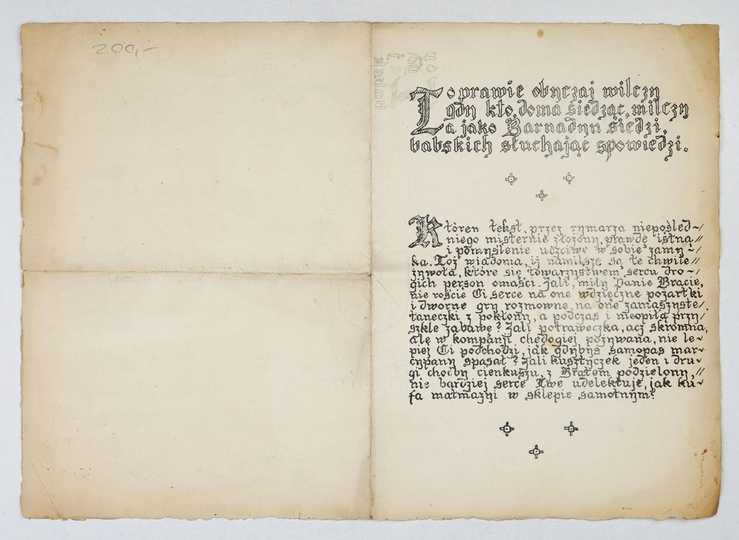 200,-
To prawie obyczaj wilczy
gdy kto, doma siedząc, milczy
a jako Barnadyn siedzi,
babskich słuchając spowiedzi.
Któren tekst, przez rymarza niepośled-
niego misternie złożony, prawdę istną
i pomyślenie uczciwe w sobie zamy-
ka. Toż wiadoma, iż namilsze są te chwile
żywota, które się towarzystwem sercu dro-
gich person omaści. Jali, miły Panie Bracie,
nie roście Ci serce na one wdzięczne pożartki
i dworne gry rozmowne, na one zamaszyste
taneczki z pokłony, a podczas i nieopiłą przy
szkle zabawę? Jali potraweczka, acz skromna,
ale w kompanji chędogiej pożywana, nie le-
piej Ci podchodzi, jak gdybyś samopas mar-
cypany spasał? Jali kusztyczek jeden i dru-
gi choćby cienkuszu, z Bratem podzielony,
nie bardziej serce Twe udelektuje, jak ku-
fa małmazyi w sklepie samotnym?